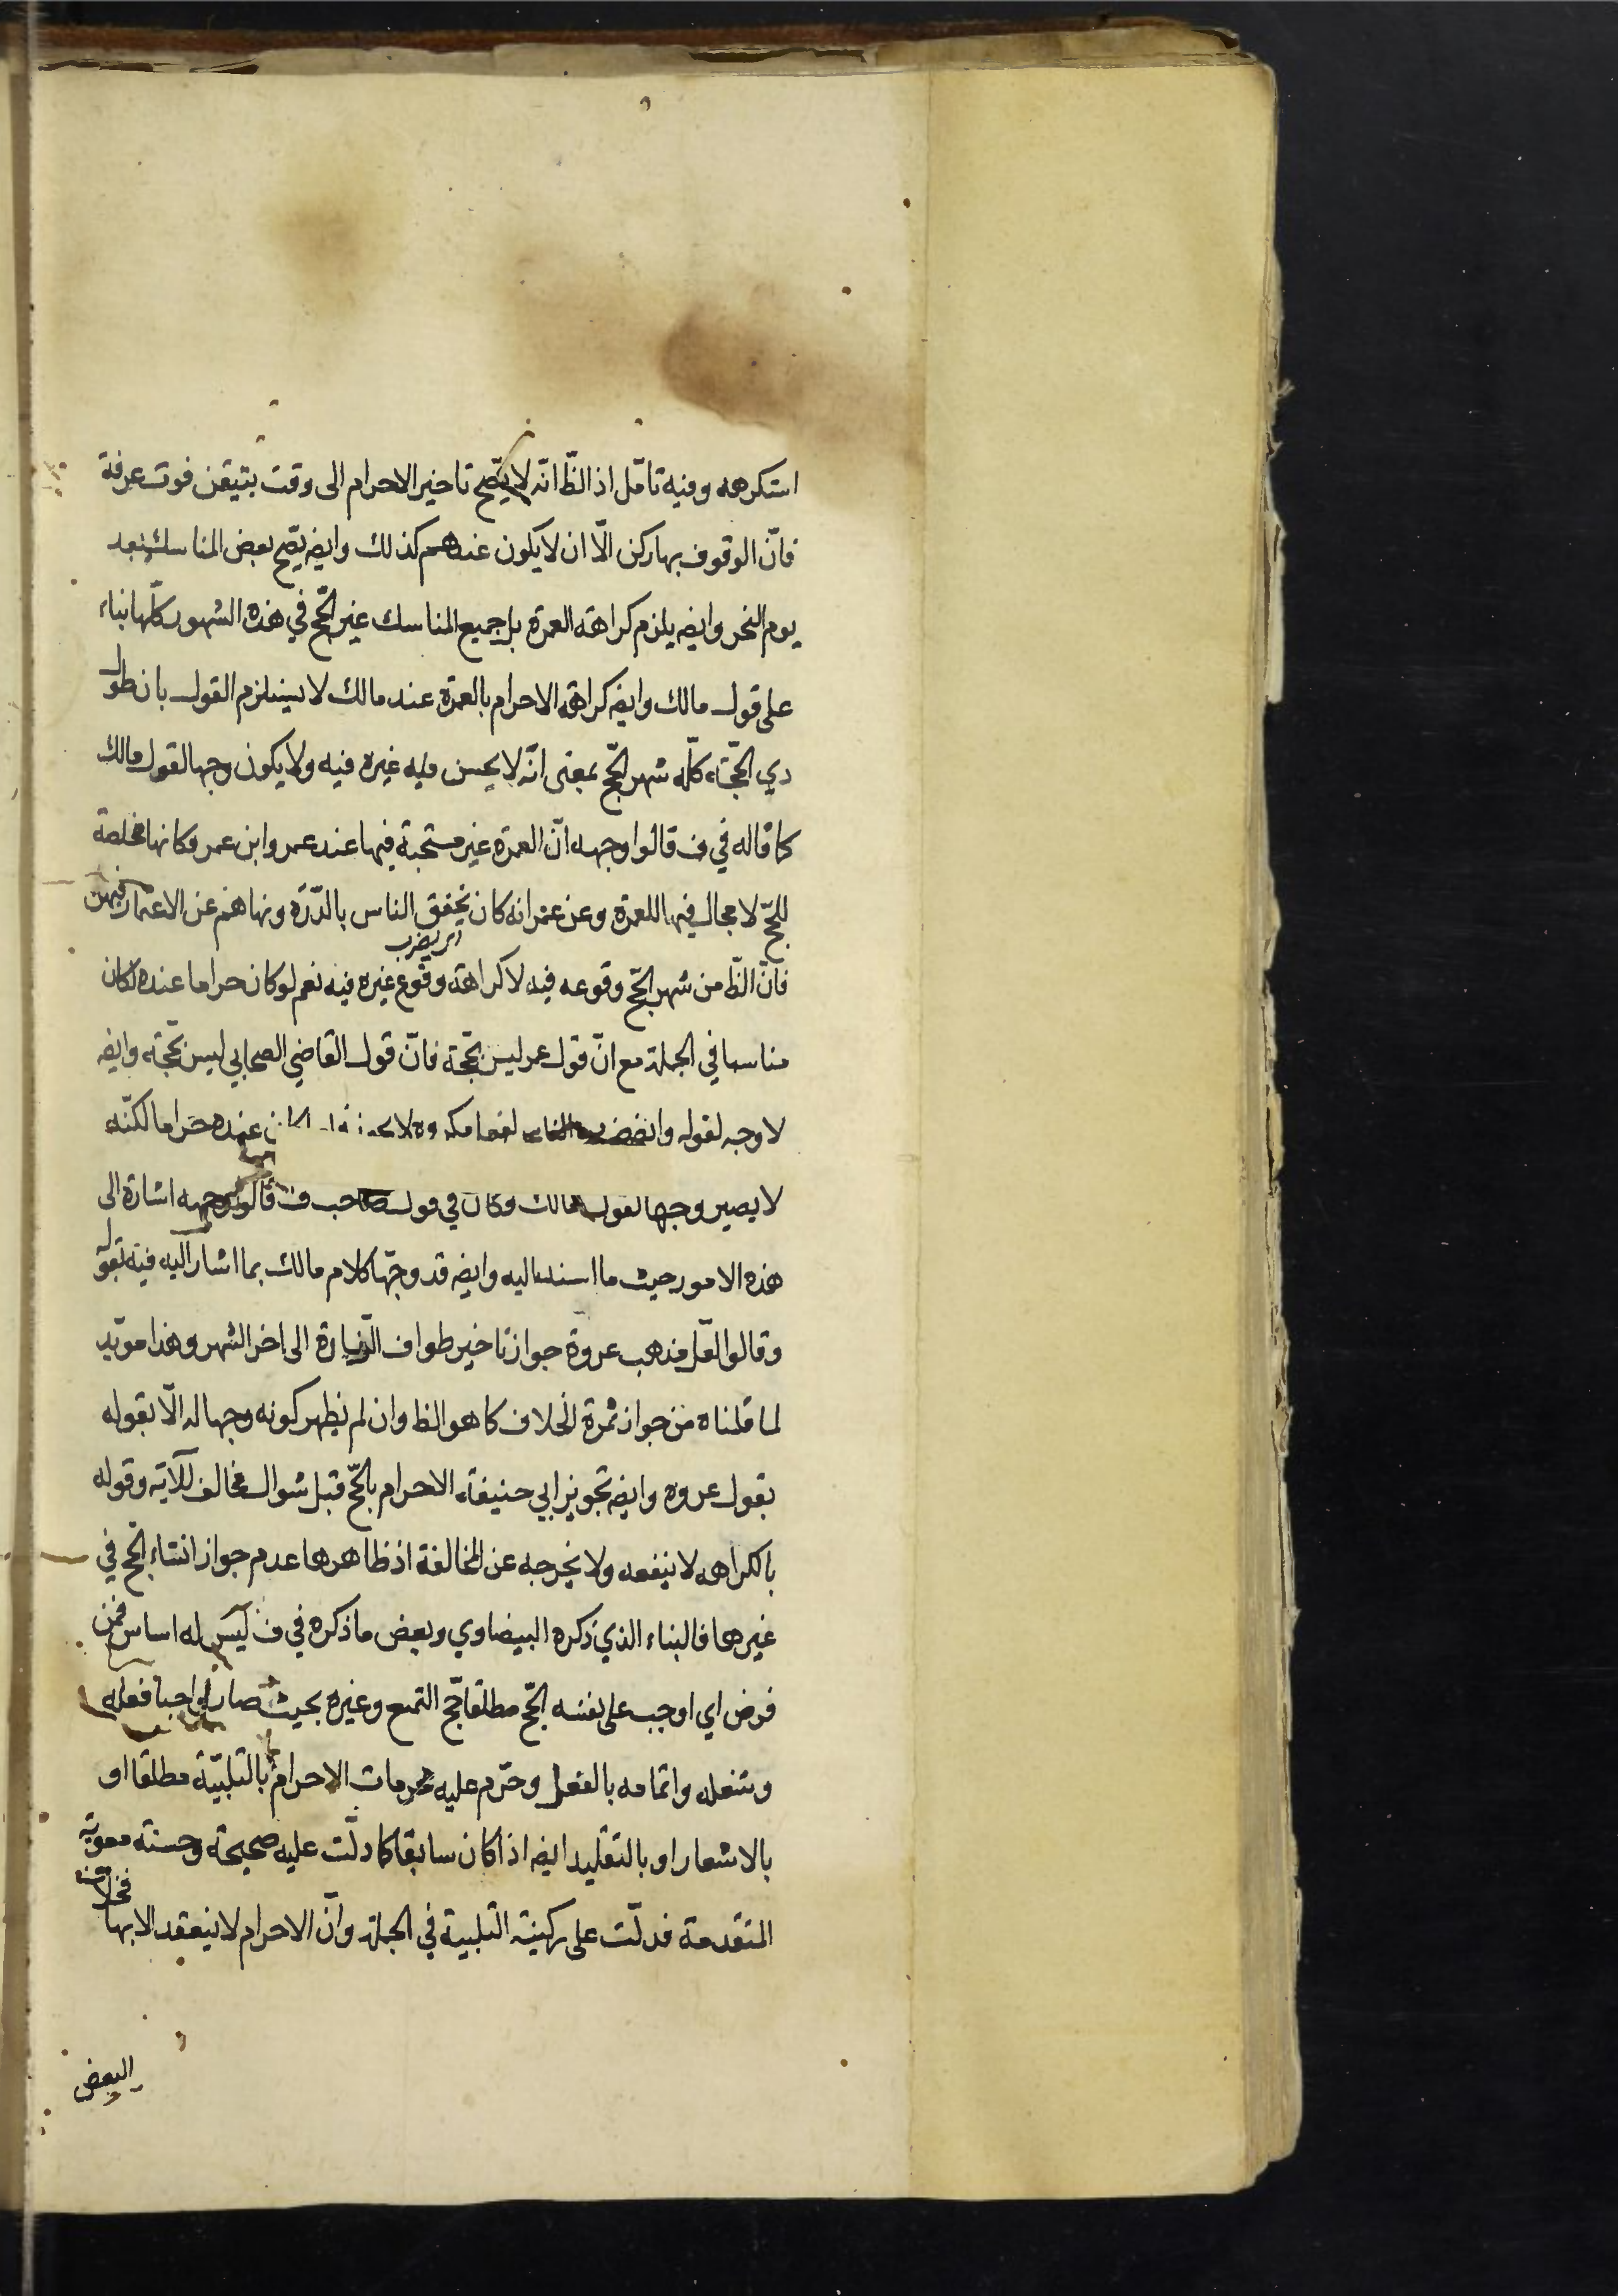 استكرهه وفيه تامّل اذ الظّ انّه لا يصّح تاخير الاحرام الى وقت يتيقن فوت عرفة
فانّ الوقوف بها ركن الّا ان لا يكون عندهم كذلك وايضه يصّح بعض المناسك بعد
يوم النحر وايضه يلزم كراهة العمرة بل جميع المناسك غير الحّج في هذه الشهور كلّها بناء
على قول مالك وايضه كراهة الاحرام بالعمرة عند مالك لا يستلزم القول بان طول
ذي الحجّة كلّه شهر الحّج بمعنى انّه لا يحسن فيه غيره فيه ولا يكون وجها لقول مالك
كما قاله في ف قالوا وجهه انّ العمرة غير مستحبة فيها عند عمر وابن عمر وكانها مخلصة
للحّج لا مجال فيها للعمرة وعن عمر انه كان يخفق الناس بالدّرّة ونهاهم عن الاعتمار فيهن
اي يضرب
فانّ الظّ من شهر الحّج وقوعه فيه لا كراهة وقوع غيره فيه نعم لو كان حراما عنده لكان
مناسبا في الجملة مع انّ قول عمر ليس بحّجة فانّ قول القاضي الصحابي ليس بحّجة وايضه
لا وجه لقوله وايضه عنده حراما لكنّه
لا يصير وجها لقول مالك وكان في قول صاحب ف قالوا وجهه اشارة الى
هذه الامور حيث ما اسند اليه وايضه قد وجّها كلام مالك بما اشار اليه فيه بقوله
وقالوا لعلّ مذهب عروة جواز تاخير طواف الزّيارة الى اخر الشهر وهذا مويّد
لما قلناه من جواز ثمرة الخلاف كما هو الظا وان لم يظهر كونه وجها له الّا بقوله
بقول عروه وايضه تجويز ابي حنيفة الاحرام بالحّج قبل شوال مخالف للآية وقوله
بالكراهه لا ينفعه ولا يخرجه عن المخالفة اذ ظاهرها عدم جواز انشاء الحّج في
غيرها فالبناء الذي ذكره البيضاوي وبعض ما ذكره في ف ليس له اساس فمن
فرض اي اوجب على نفسه الحّج مطلقا حّج التمتع وغيره بحيث صار واجبا فعله
واتمامه بالفعل وحرّم عليه محرمات الاحرام بالتلبيّة مطلقا او
بالاشعار او بالتقليد ايضه اذا كان سابقا كما دلّت عليه صحيحة وحسنة معوية
المتقدمة فدلّت على ركنية التلبية في الجملة وانّ الاحرام لا ينعقد الا بها
البعض